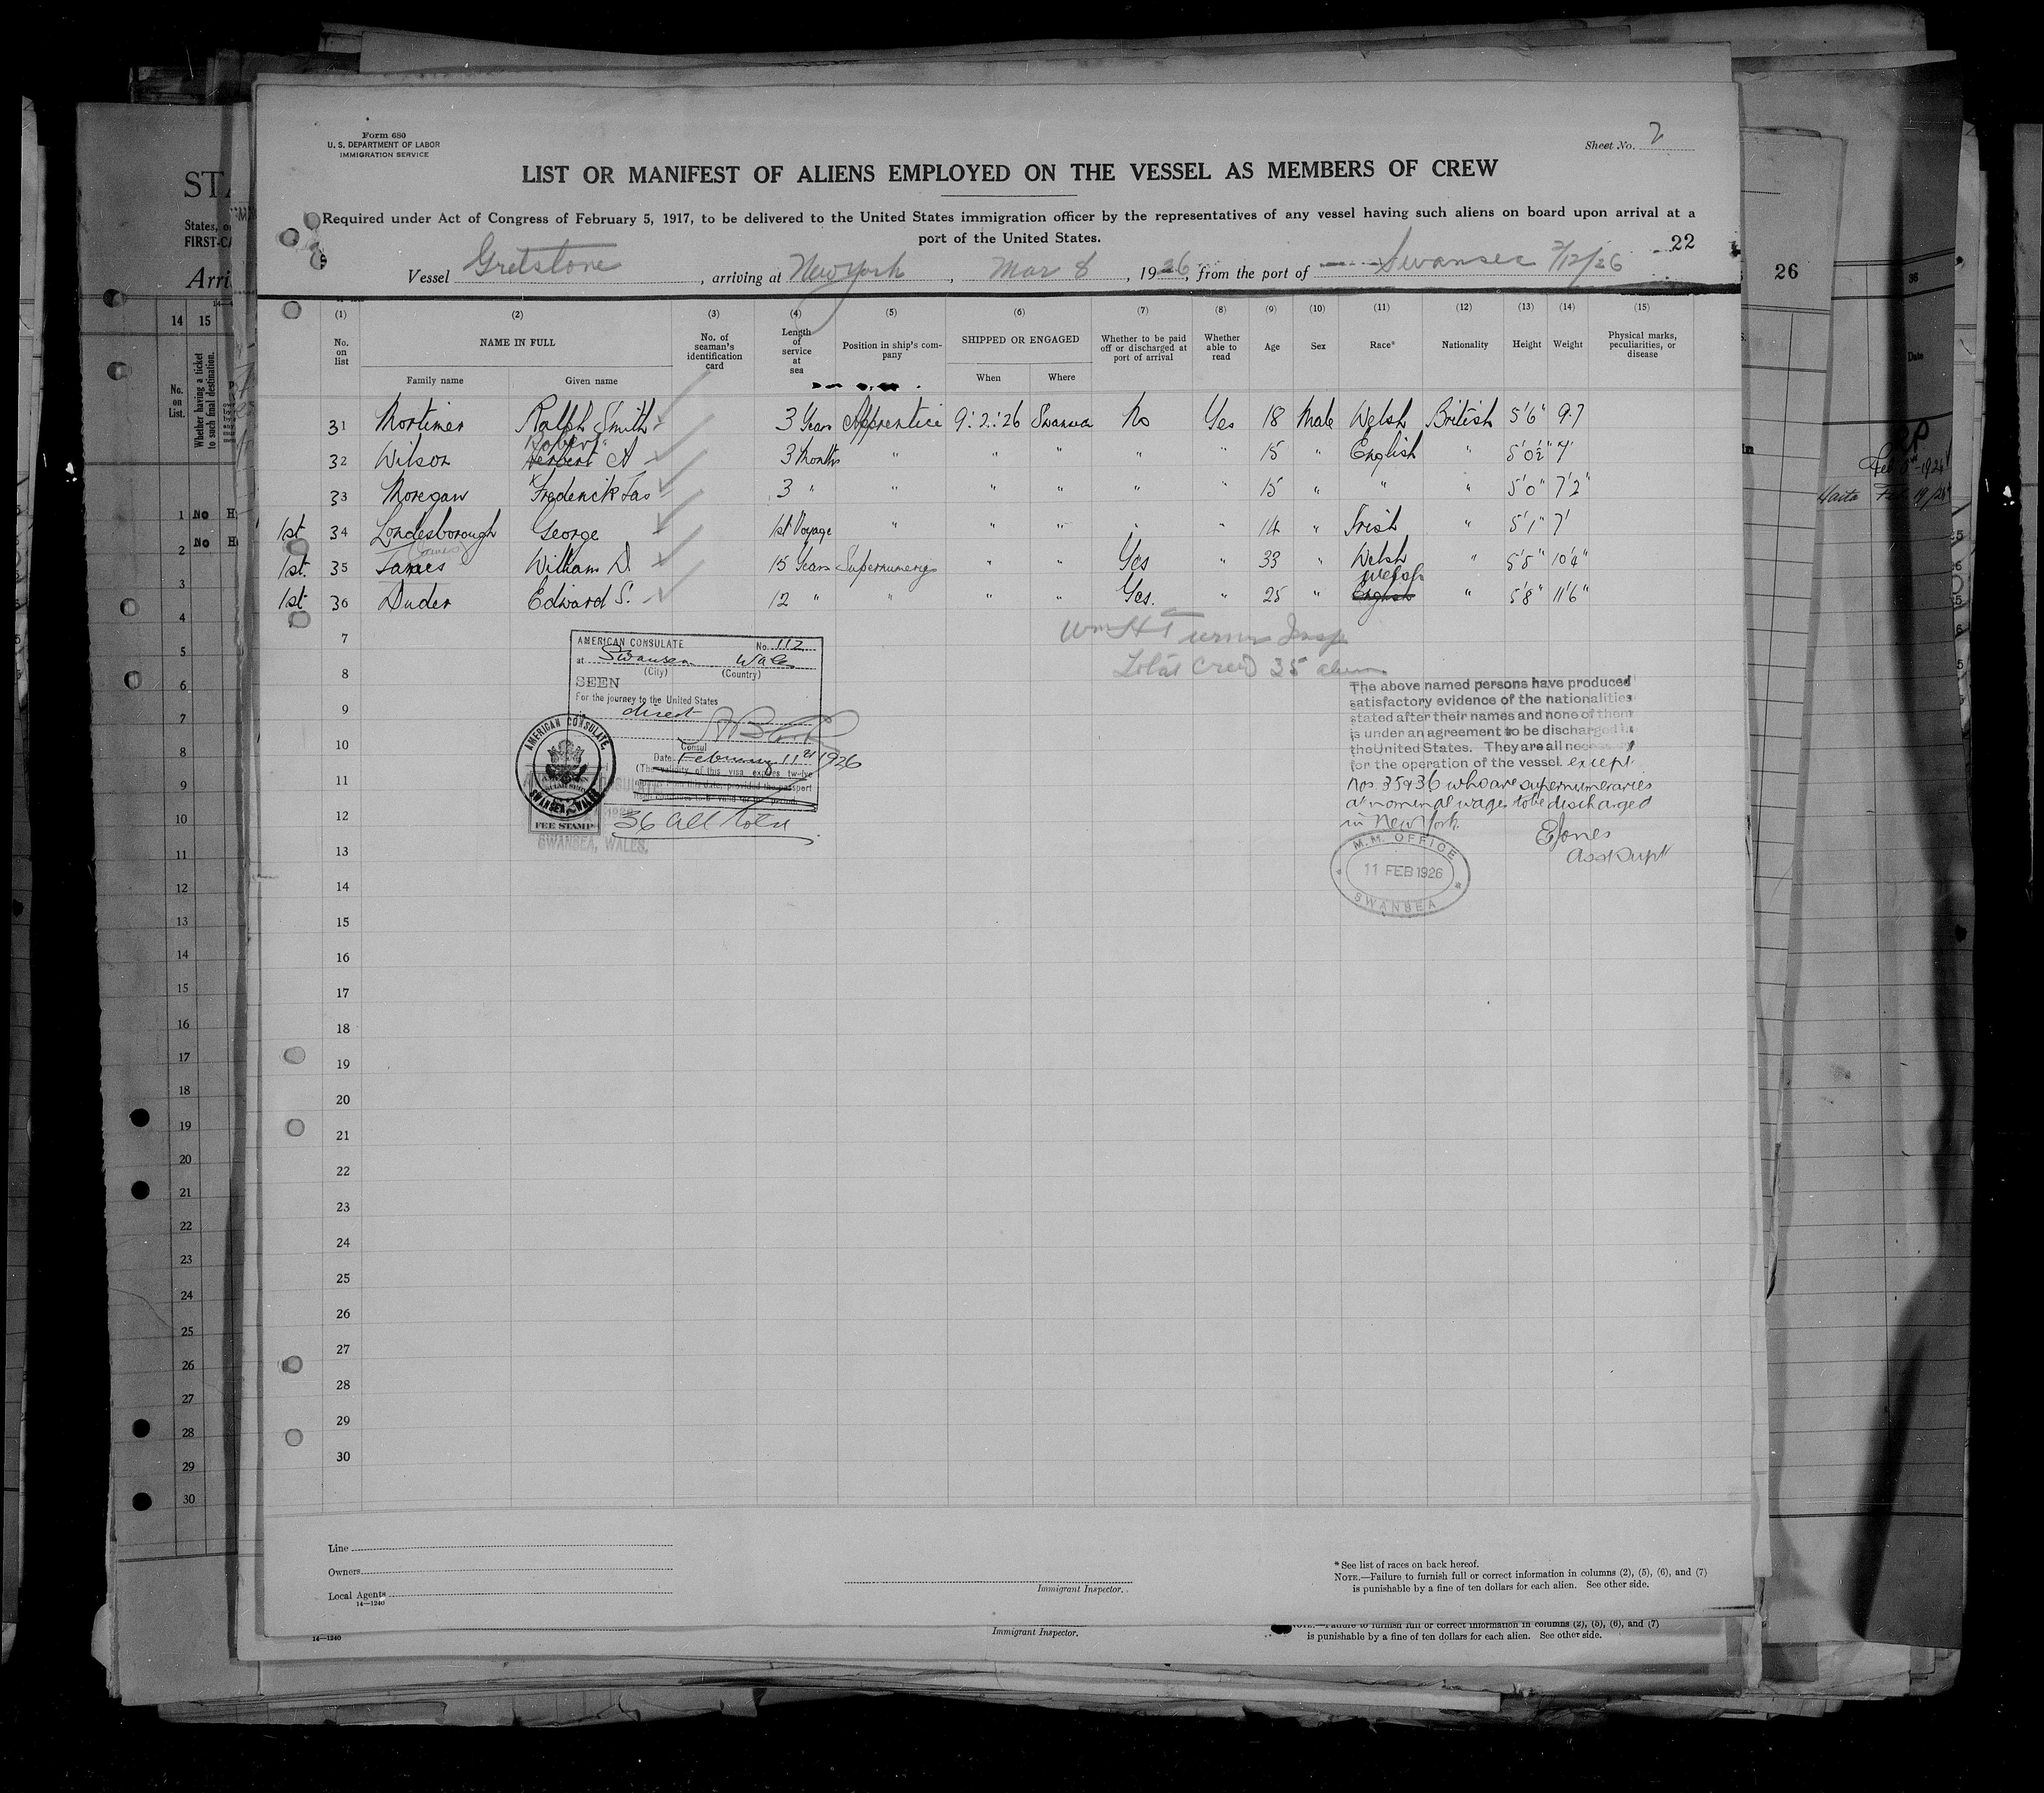 Form 680
U. S. DEPARTMENT OF LABOR
IMMIGRATION SERVICE
Sheet No. 2
LIST OR MANIFEST OF ALIENS EMPLOYED ON THE VESSEL AS MEMBERS OF CREW
Required under Act of Congress of February 5, 1917, to be delivered to the United States immigration officer by the representatives of any vessel having such aliens on board upon arrival at a
port of the United States.
22
Vessel Gretstone, arriving at New York, Mar 8, 1926, from the port of Swansea 2/12/26
(1) (2) (3) (4) (5) (6) (7) (8) (9) (10) (11) (12) (13) (14) (15)
No. on list
NAME IN FULL
Family name Given name
No. of seaman's identification card
Length of service at sea
Position in ship's company
SHIPPED OR ENGAGED
When Where
Whether to be paid off or discharged at port of arrival
Whether able to read
Age Sex Race* Nationality Height Weight
Physical marks, peculiarities, or disease
31 Mortimer Ralph Smith 3 Years Apprentice 9:2:26 Swansea No Yes 18 Male Welsh British 5'6" 9.7
Robert
32 Wilson Herbert A 3 Months " " " " " 15 " English " 5'0½" 7'
33 Moregan Frederick Jas 3 " " " " " " 15 " " " 5'0" 7'2"
1st 34 Londesborough George 1st Voyage " " " " " 14 " Irish " 5'1" 7'
James
1st. 35 James William D 15 Years Supernumery " " Yes " 33 " Welsh " 5'5" 10'4"
Welsh
1st 36 Duder Edward S. 12 " " " " Yes. " 25 " English " 5'8" 11'6"
Wm H Turner Insp
Total Crew 35 aliens
AMERICAN CONSULATE No. 112
at Swansea Wales
(City) (Country)
SEEN
For the journey to the United States
direct
Consul
Date February 11th 1926
(The validity of this visa expires twelve
from this date, provided the passport
continues to be valid for that period.
AMERICAN CONSULATE,
SWANSEA, WALES
FEE STAMP
SWANSEA, WALES.
36 all told
The above named persons have produced
satisfactory evidence of the nationalities
stated after their names and none of them
is under an agreement to be discharged in
the United States. They are all necessary
for the operation of the vessel. except
nos 35 & 36 who are supernumeraries
at nominal wages to be discharged
in New York.
E Jones
Asst Supt
M. M. OFFICE
11 FEB 1926
SWANSEA
7
8
9
10
11
12
13
14
15
16
17
18
19
20
21
22
23
24
25
26
27
28
29
30
Line
Owners
Local Agents
14—1240
Immigrant Inspector.
* See list of races on back hereof.
NOTE.—Failure to furnish full or correct information in columns (2), (5), (6), and (7)
is punishable by a fine of ten dollars for each alien. See other side.
14—1240
Immigrant Inspector.
NOTE.—Failure to furnish full or correct information in columns (2), (5), (6), and (7)
is punishable by a fine of ten dollars for each alien. See other side.
STA
States, o
FIRST-CA
Arri
14 15
No. on List.
Whether having a ticket to such final destination.
1 No H
2 No H
3
4
5
6
7
8
9
10
11
12
13
14
15
16
17
18
19
20
21
22
23
24
25
26
27
28
29
30
26
36
Date